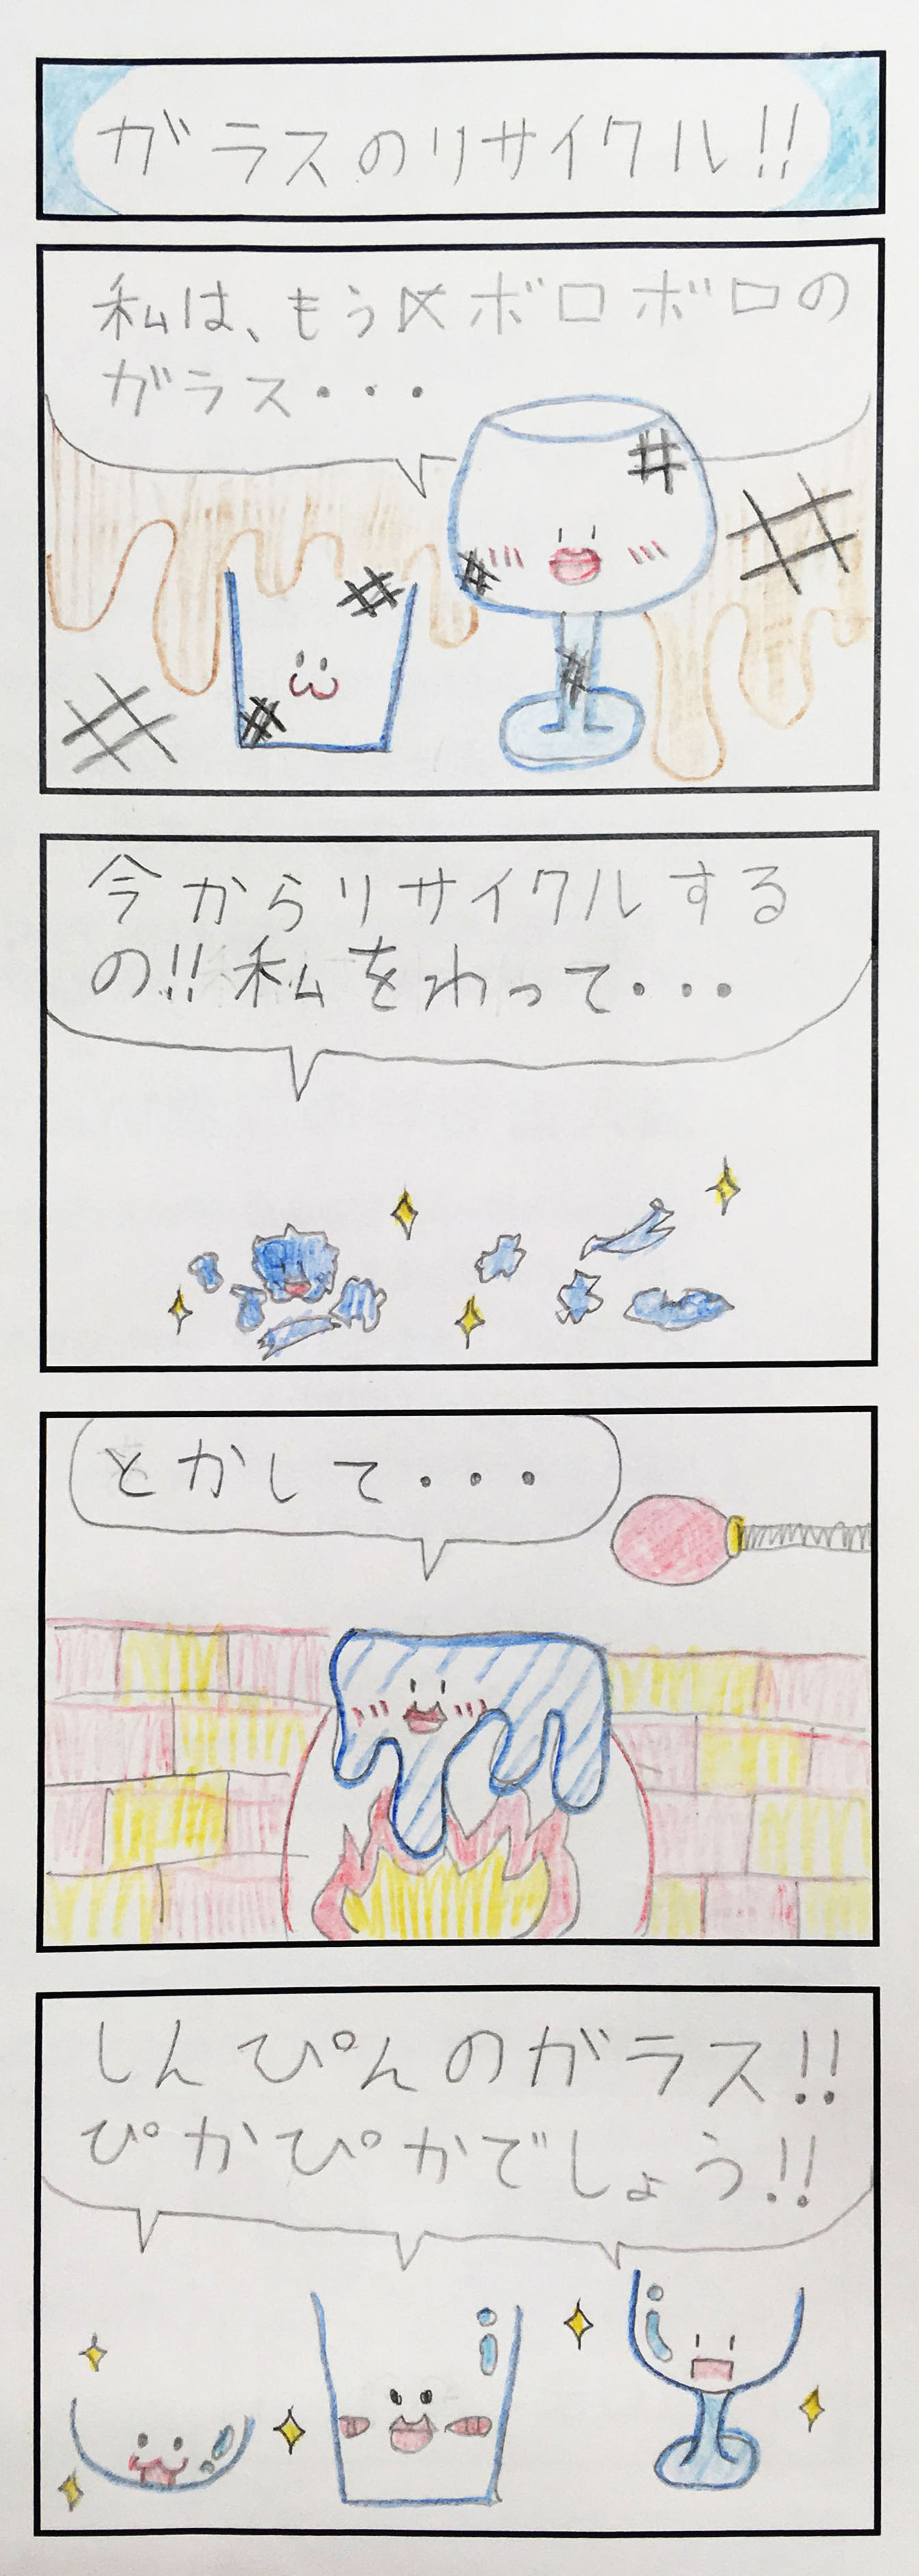 ガラスのリサイクル!!
私は、もう〆ボロボロの
ガラス・・・
今からリサイクルする
の!!私をわって・・・
とかして・・・
しんぴんのガラス!!
ぴかぴかでしょう!!